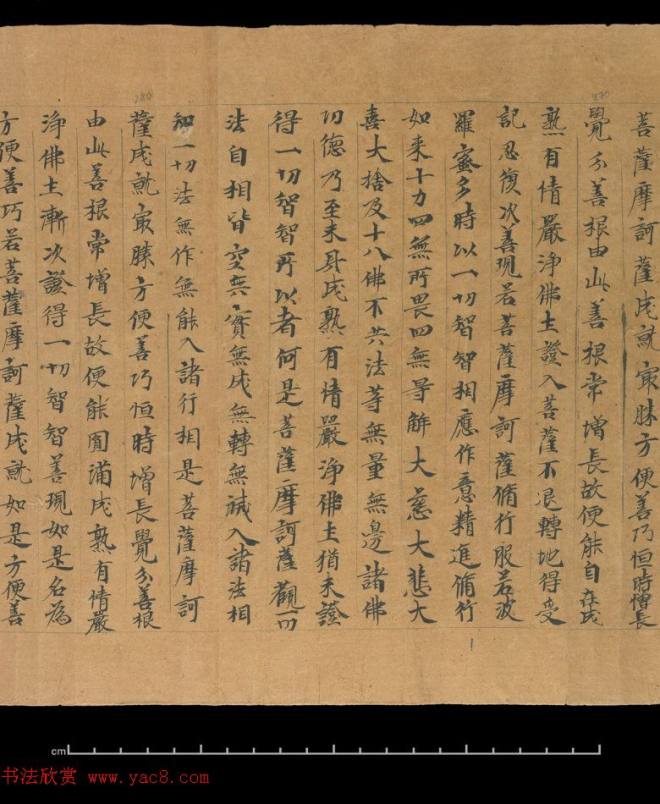 菩薩摩訶薩成就冣勝方便善巧恒時增長
覺分善根由此善根常增長故便能自在成
熟有情嚴淨佛土證入菩薩不退轉地得受
記忍復次善現若菩薩摩訶薩脩行般若波
羅蜜多時以一切智智相應作意精進脩行
如来十力四無所畏四無㝵解大慈大悲大
喜大捨及十八佛不共法等無量無邊諸佛
功德乃至未具成熟有情嚴淨佛土猶未證
得一切智智所以者何是菩薩摩訶薩觀一切
法自相皆空無實無成無轉無滅入諸法相
知一切法無作無能入諸行相是菩薩摩訶
薩成就冣勝方便善巧恒時增長覺分善根
由此善根常增長故便能圓滿成熟有情嚴
淨佛土漸次證得一切智智善現如是名為
方便善巧若菩薩摩訶薩成就如是方便善
cm
书法欣赏 www.yac8.com